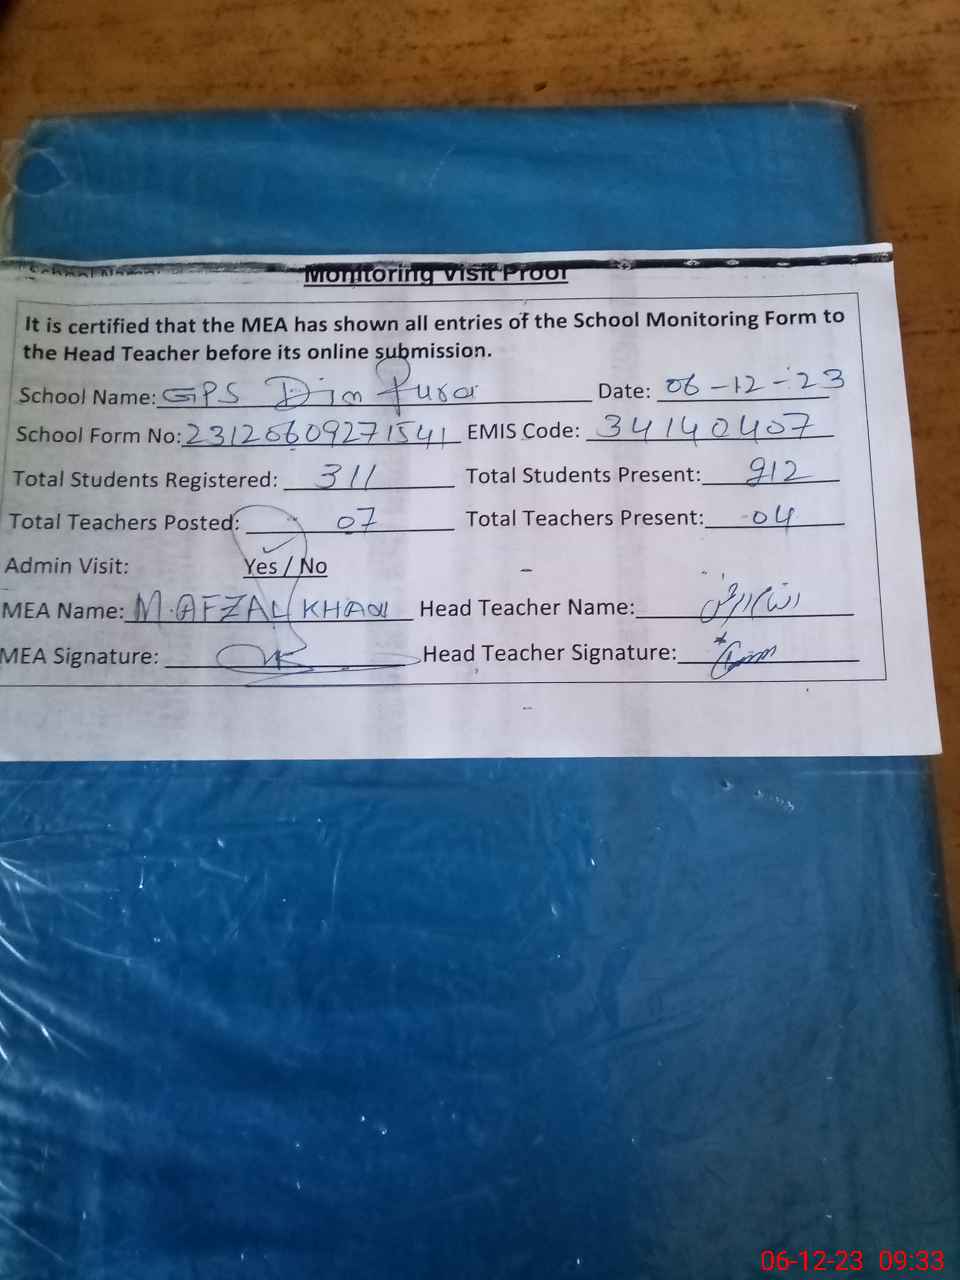 Monitoring Visit Proof
It is certified that the MEA has shown all entries of the School Monitoring Form to
the Head Teacher before its online submission.
School Name: GPS Dim Pura Date: 06-12-23
School Form No: 23120609271541 EMIS Code: 34140407
Total Students Registered: 311 Total Students Present: 212
Total Teachers Posted: 07 Total Teachers Present: 04
Admin Visit: Yes / No
MEA Name: M.AFZAL KHAN Head Teacher Name:
MEA Signature: Head Teacher Signature:
06-12-23 09:33